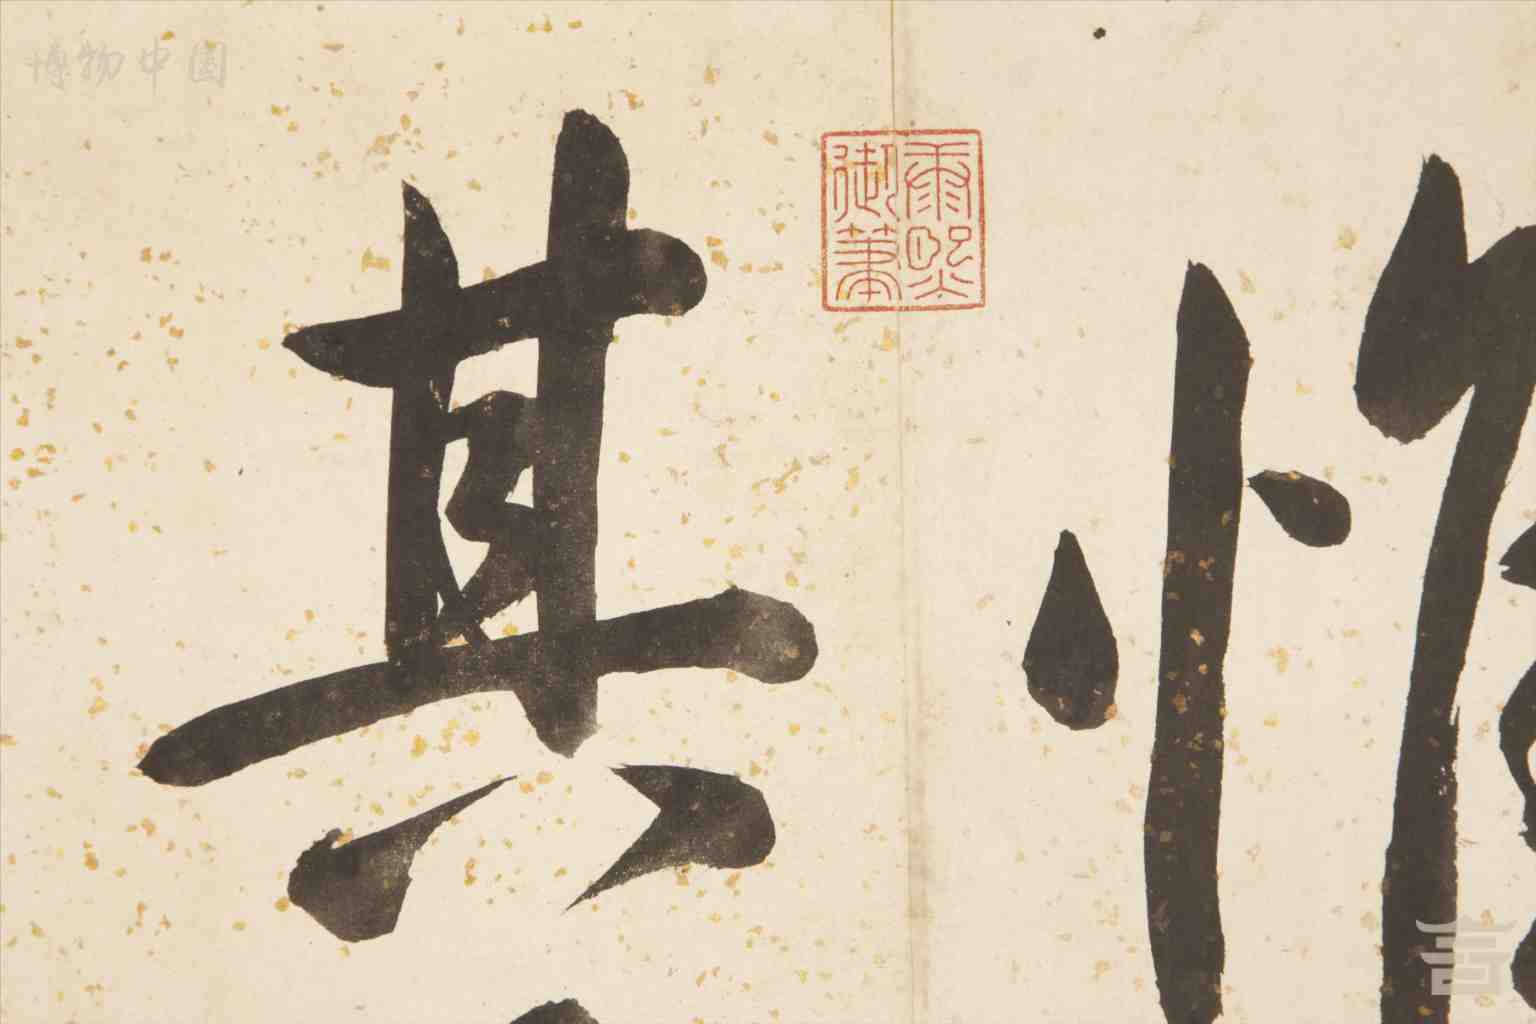 博物中國
惟
其
康熙
御筆